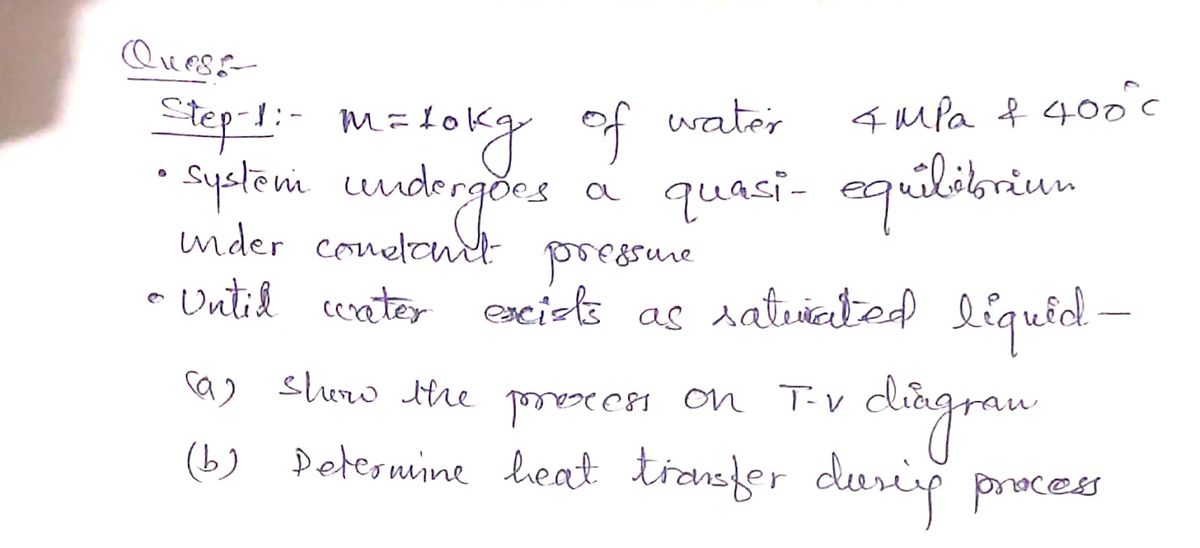 Ques:-
Step-1:- m=10Kg of water 4 MPa & 400°C
• System undergoes a quasi- equilibrium
under constant pressure
• Until water exists as saturated liquid -
(a) show the process on T-v diagram
(b) Determine heat transfer during process